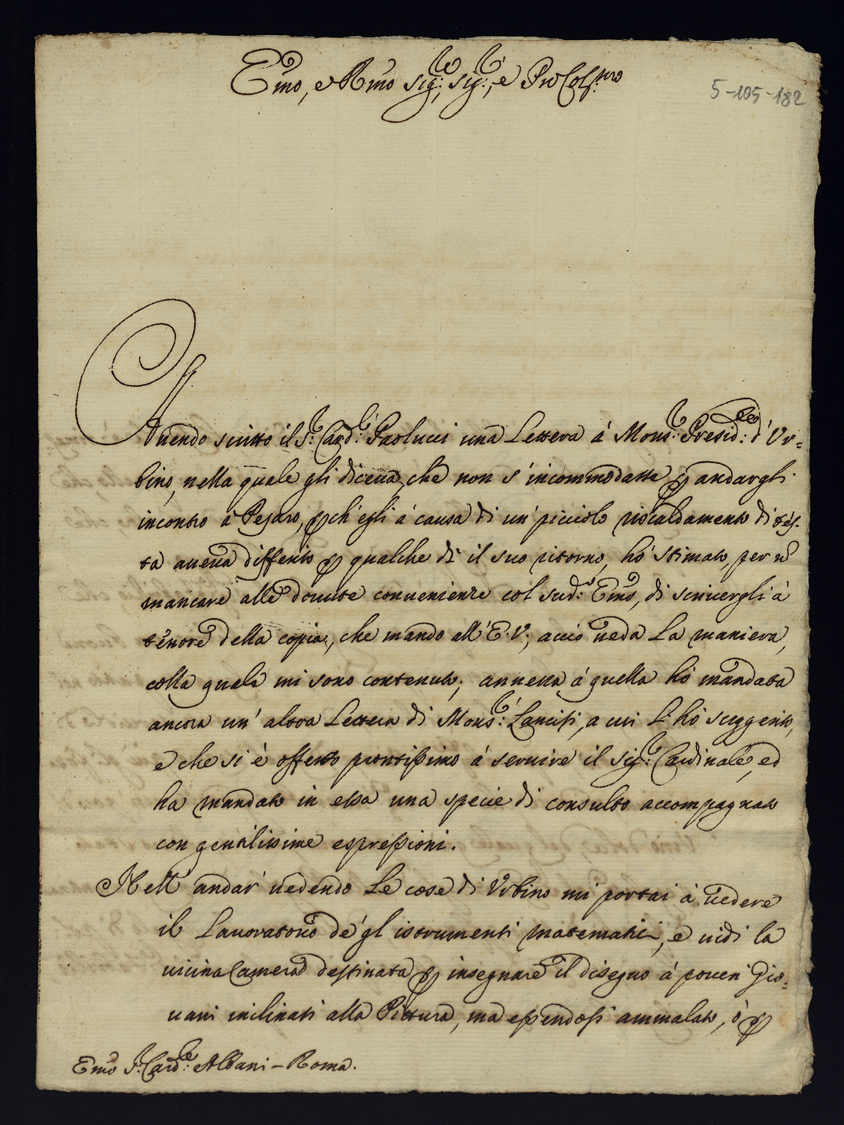 Emo, e Rmo Sig:re, Sig:re, e Pro Col:mo
5-105-182
Auendo scritto il S:r Card:l Paolucci una Lettera á Mons:r Presid:te d'Ur=
bino, nella quale gli diceua, che non s'incommodasse p andargli
incontro á Pesaro, p ch'egli á causa di un' picciolo riscaldamento di tes-
ta aueua differito p qualche dí il suo ritorno, hó stimato, per ñ
mancare alle douute conuenienze col sud:o Emo, di scriuergli á
tenore della copia, che mando all' E. V., acció ueda La maniera,
colla quale mi sono contenuto; annessa á quella hó mandata
ancora un' altra Lettera di Mons:r Lancisi, a cui L'hó suggerito,
e che si é offerto prontissimo á seruire il Sig:r Cardinale, ed
ha mandato in essa una specie di consulto accompagnato
con gentilissime espressioni.
Nell' andar' uedendo Le cose di Urbino mi portai á uedere
il Lauoratorio de'gl' istrumenti matematici, e uidi la
uicina Camera destinata p insegnare il disegno á poueri Gio=
uani inclinati alla Pittura, ma essendosi ammalato, ó p
Emo S:r Card:le Albani - Roma.